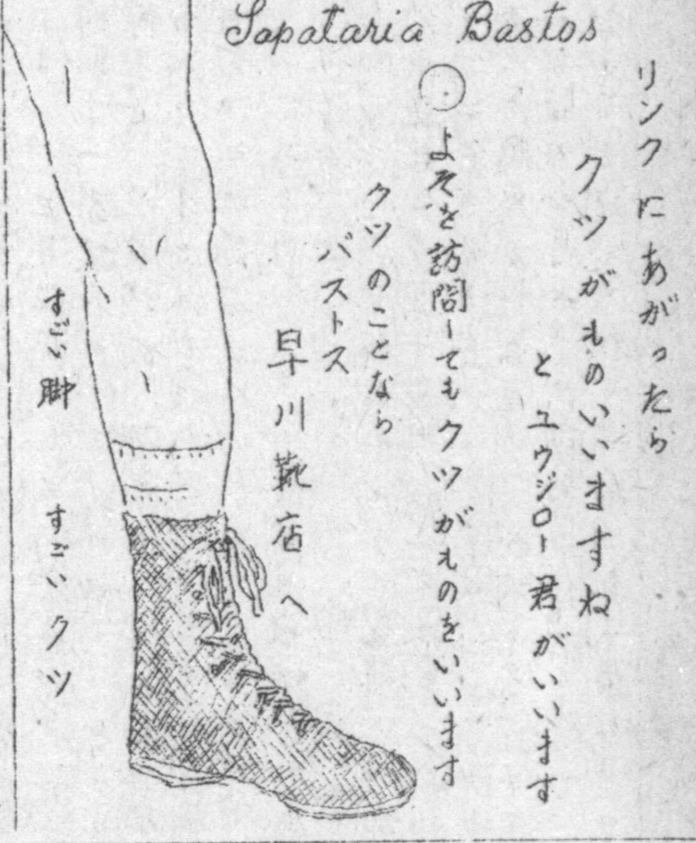 Sapataria Bastos
リンクにあがったら
クツがものいいますね
とユウジロー君がいいます
よそを訪問してもクツがものをいいます
クツのことなら
バストス
早川靴店へ
すごい脚
すごいクツ